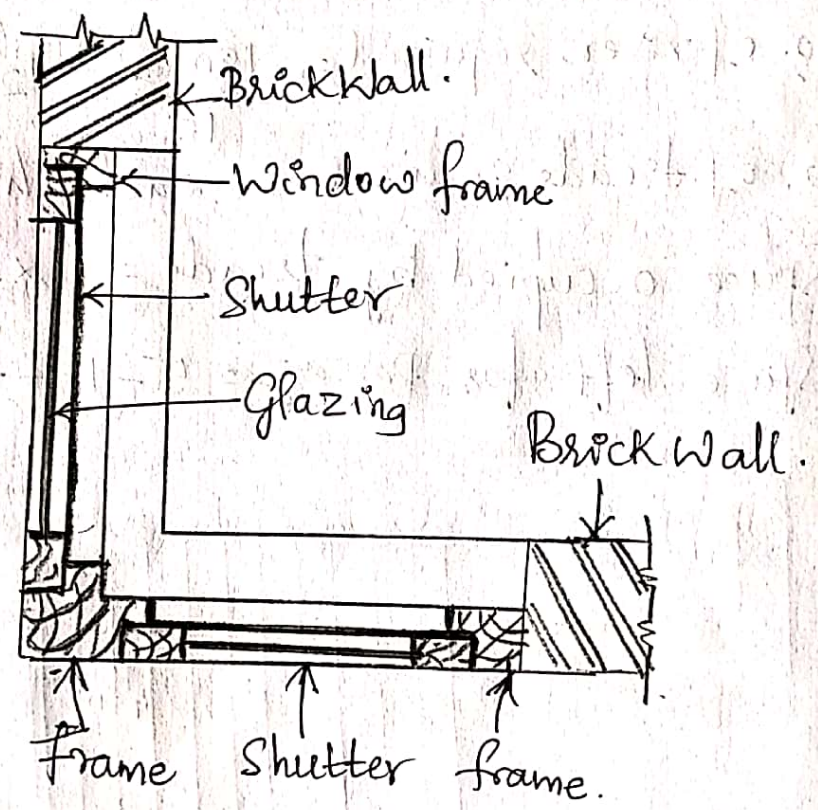 BrickWall.
Window frame
Shutter
Glazing
Brick Wall.
frame
Shutter
frame.